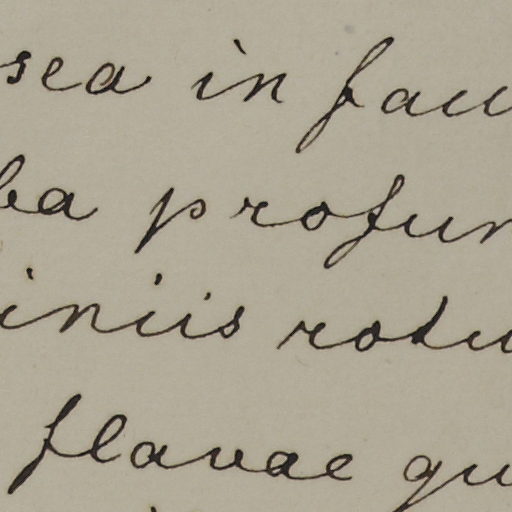 sea in fau
ba profun
iniis rotu
flavae qu